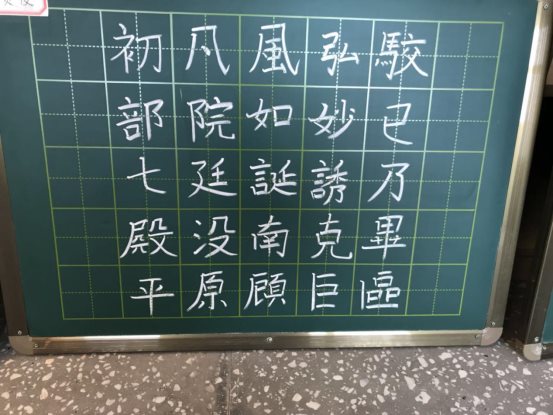 初凡風弘駮
部院如妙已
七廷誕誘乃
殿没南克畢
平原顧巨區